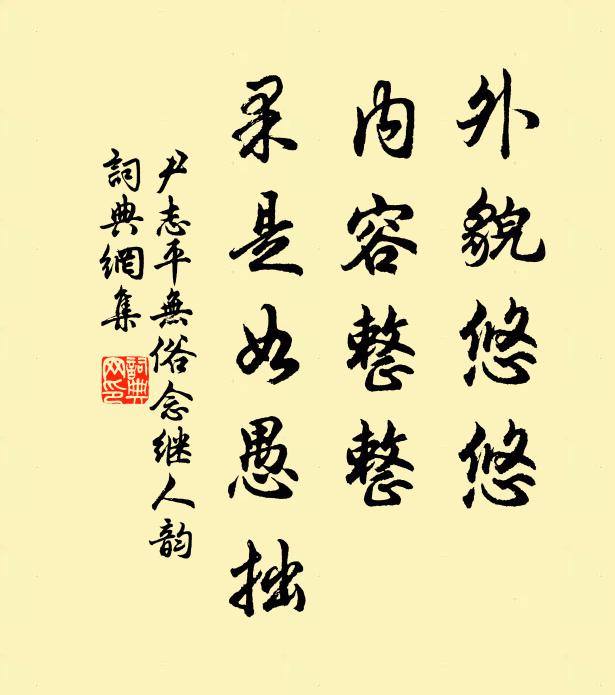 外貌悠悠
内容整整
果是如愚拙
尹志平無俗念继人韵
詞典網集
詞典网印